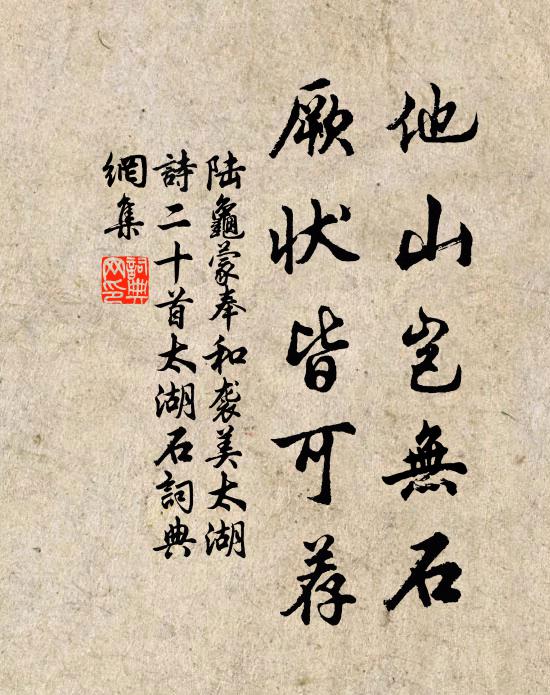 他山岂無石
厥状皆可荐
陆龜蒙奉和袭美太湖
詩二十首太湖石詞典
網集
詞典網印